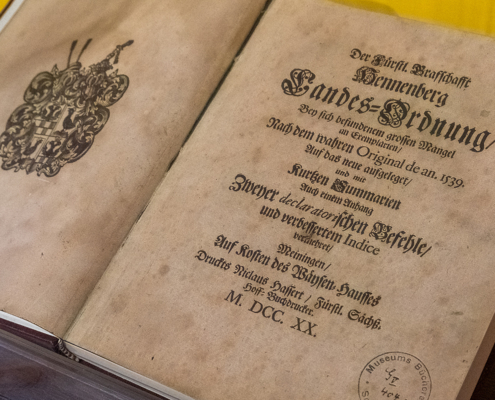 Der Fürstl. Graffschafft
Hennenberg
Landes-Ordnung/
Bey sich befundenem grossen Mangel
an Exemplarien/
Nach dem wahren Original de an. 1539.
Auf das neue aufgeleget/
und mit
Kurtzen Summarien
Auch einem Anhang
Zweyer declaratorischen Befehle/
und verbessertem Indice
vermehret/
Meiningen/
Auf Kosten des Wäysen-Hausses
Druckts Niclaus Hassert/ Fürstl. Sächß.
Hoff-Buchdrucker.
M. DCC. XX.
Museums Büch